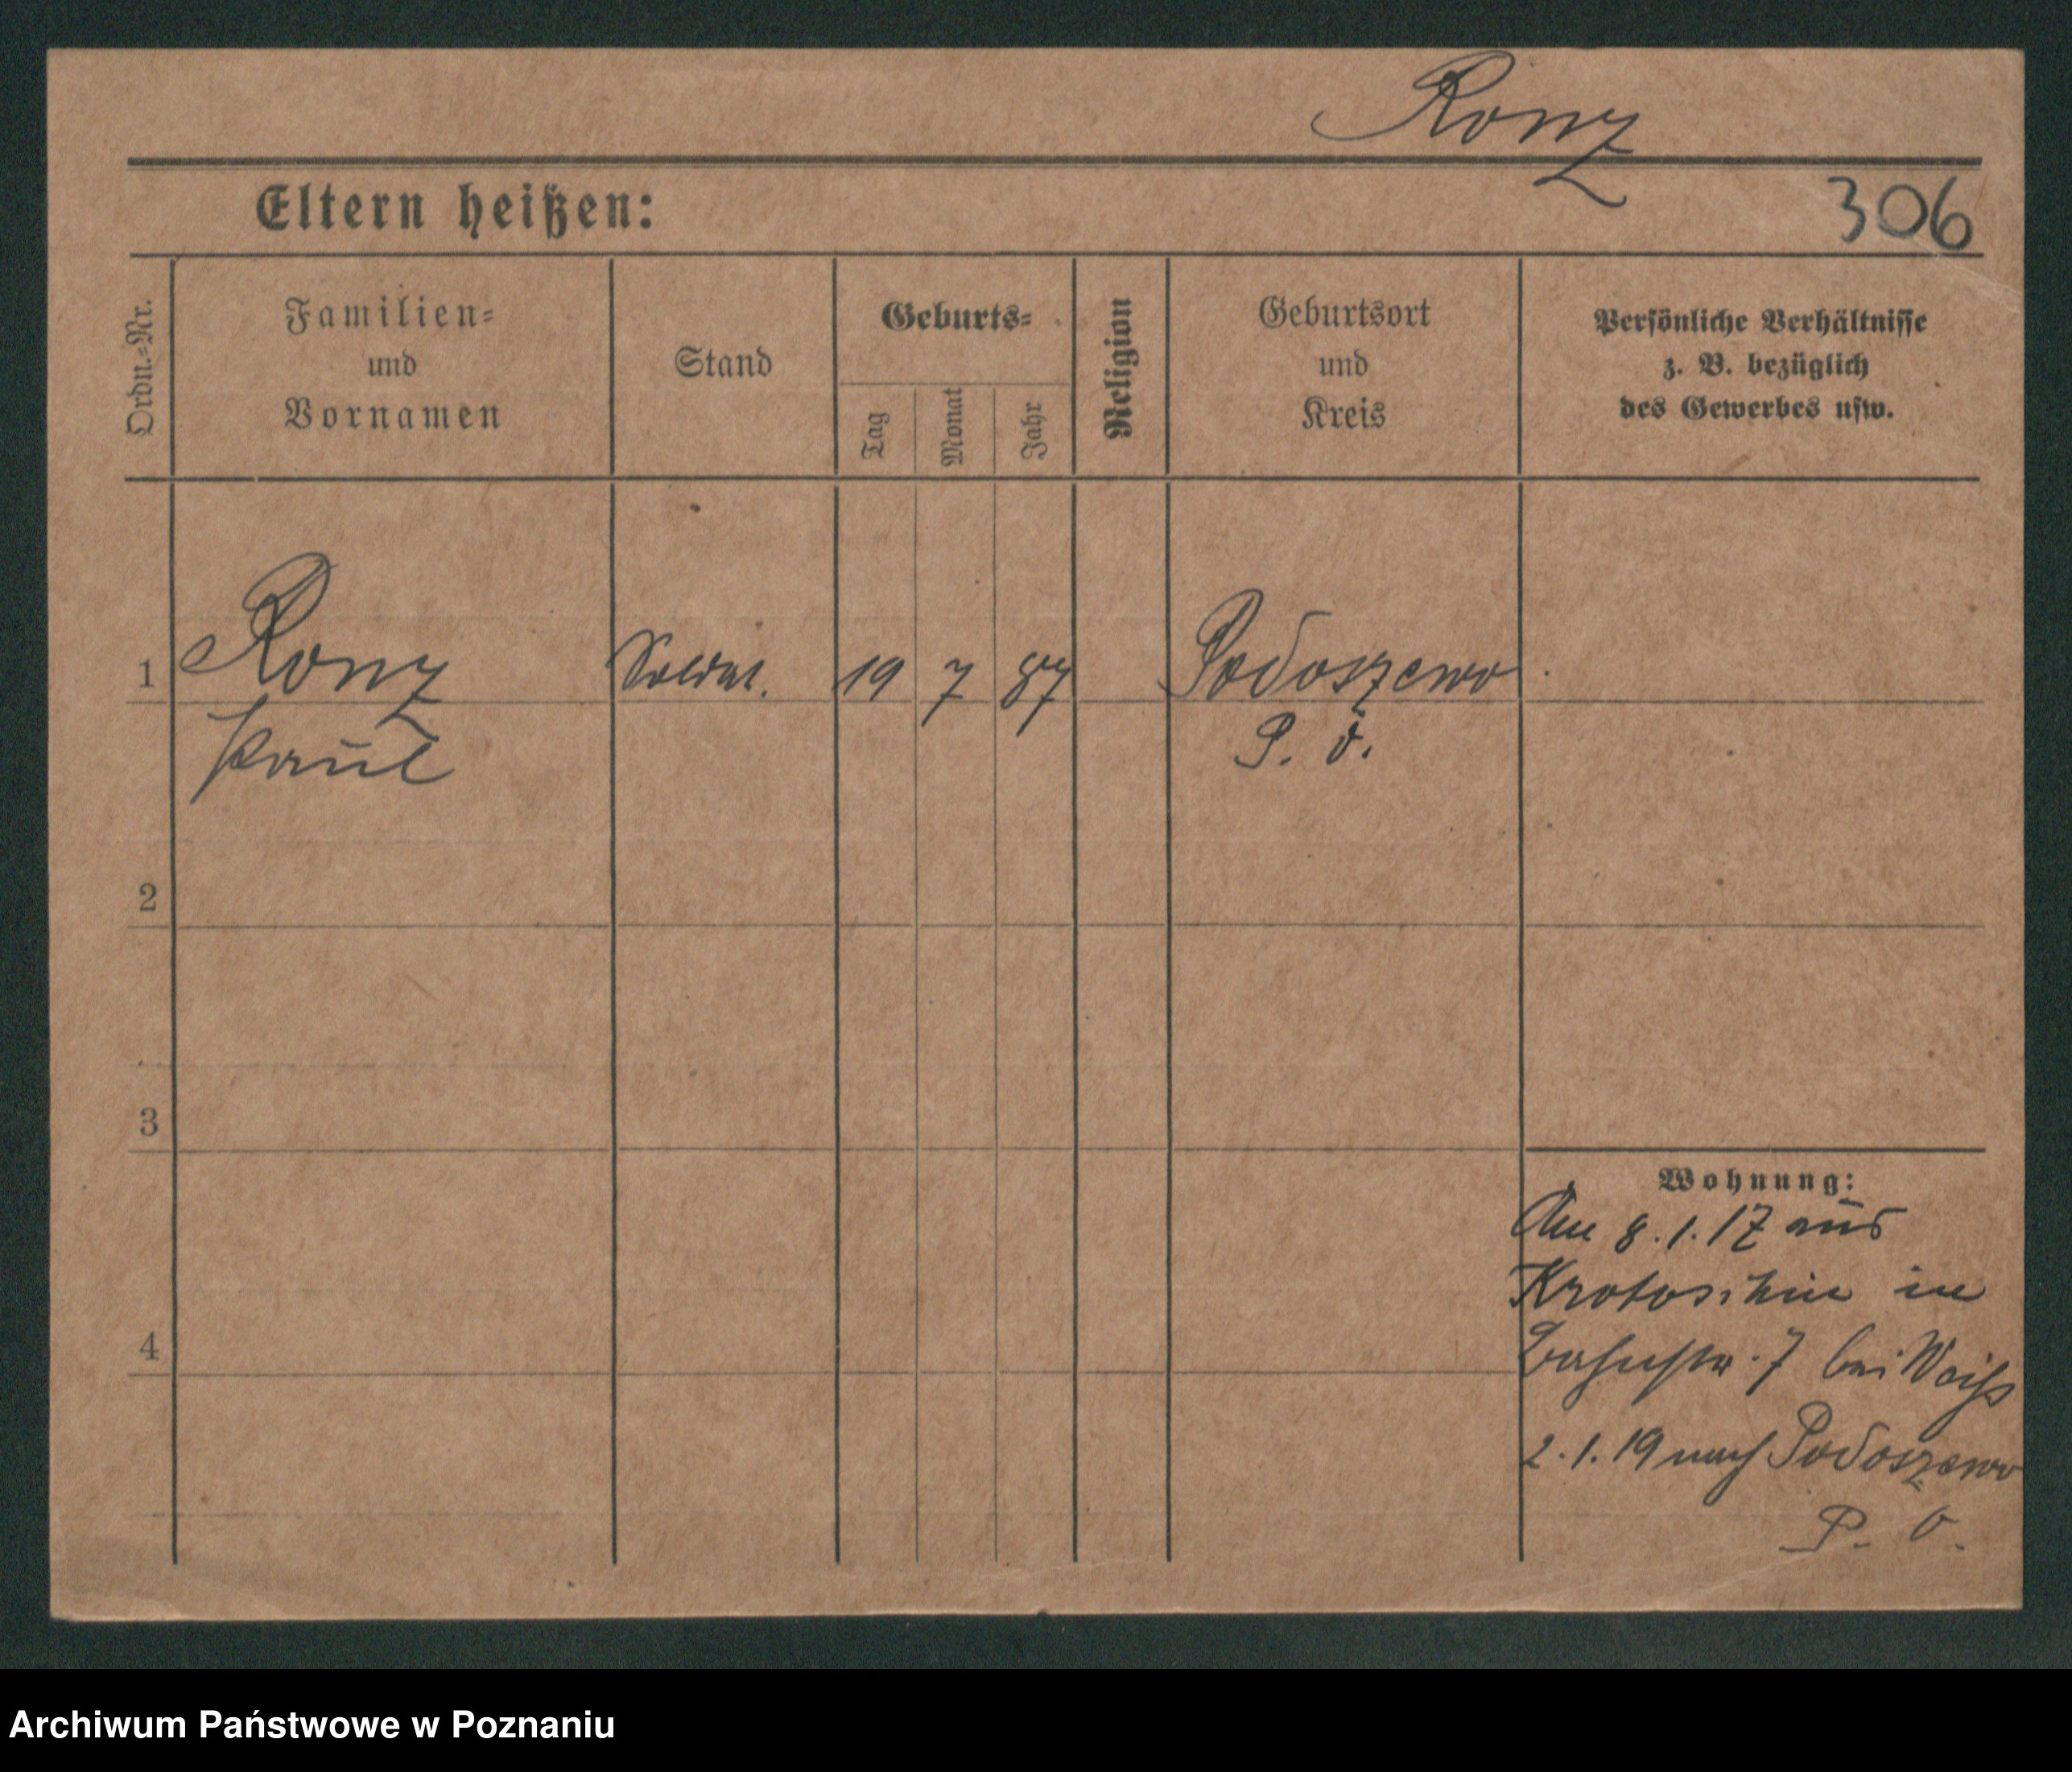 Ronz
Eltern heißen:
306
Ordn.=Nr.
Familien=
und
Vornamen
Stand
Geburts=
Tag
Monat
Jahr
Religion
Geburtsort
und
Kreis
Persönliche Verhältnisse
z. B. bezüglich
des Gewerbes usw.
1
Ronz
Soldat.
19
7
87
Podoszewo
Paul
P. O.
2
3
4
Wohnung:
Am 8.1.17 aus
Krotoschin in
Bahnstr. 7 bei Weiß
2.1.19 nach Podoszewo
P. O.
Archiwum Państwowe w Poznaniu